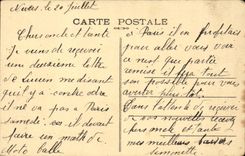 Nivas le 20 Juillet
CARTE POSTALE
Cher oncle et tante
Je viens de recevoir
une deuxième lettre
de Lucien me disant
qu'il y a contre ordre
il ne va pas à Paris
samedi, il devait
faire un match de
Moto balle
à Paris il en profitais
pour aller vous voir
ce n'est que partie
remise il fera tout
son possible pour vous
avertir plus tôt.
Dans l'attente de recevoir
vos nouvelles
mes meilleurs baisers
Simonette